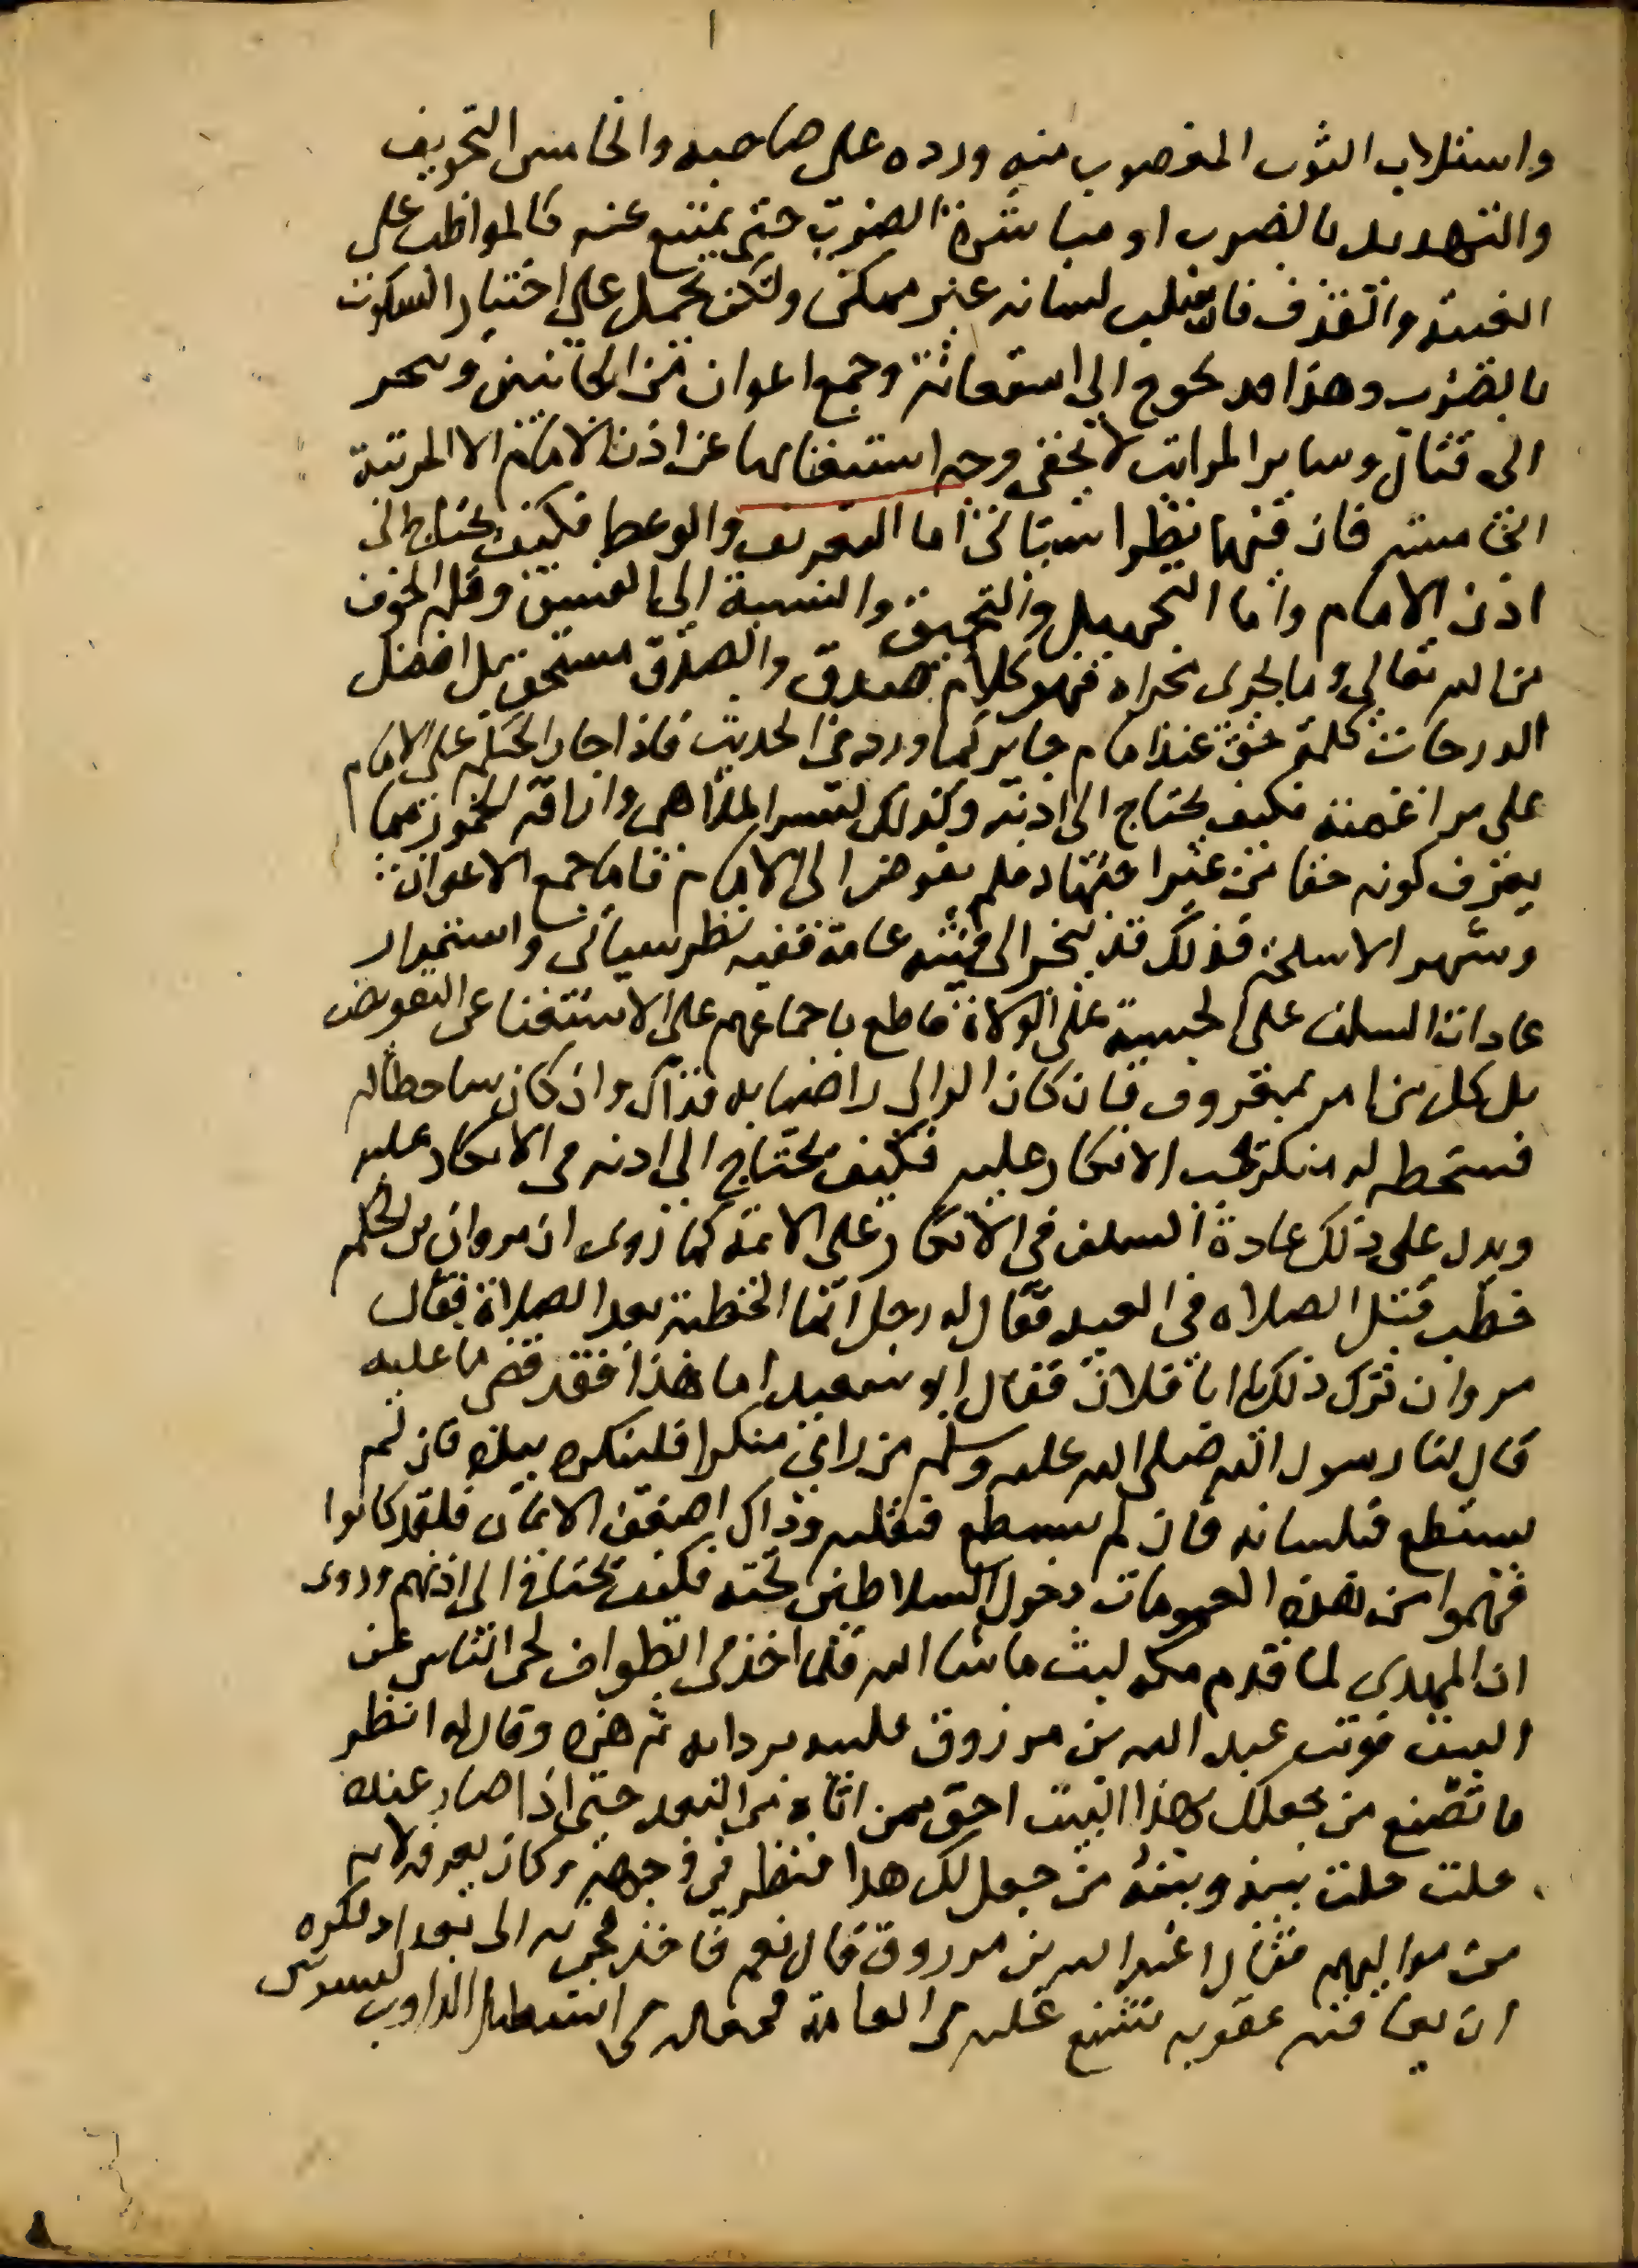 واستلاب الثوب المغصوب منه ورده على صاحبه والخامس التخويف
والتهديد بالضرب او مباشرة الضرب حتى يمتنع عنه كالمواظب على
الغيبة والقذف فان سلب لسانه غير ممكن ولكن يحمل على اختيار السكوت
بالضرب وهذا قد يحوج الى استعانة وجمع اعوان من الجانبين ويجر
الى قتال وساير المراتب لا يخفى وجه استغنايها عن اذن الامام الا المرتبة
الخامسة فان فيها نظرا سياتي اما التعريف والوعظ فكيف يحتاج الى
اذن الامام واما التجهيل والتحميق والنسبة الى الفسق وقلة الخوف
من الله تعالى وما يجرى مجراه فهو كلام صدق والصدق مستحق بل افضل
الدرجات كلمة حق عند امام جاير كما ورد في الحديث فاذا جاز الحكم على الامام
على مراغمته فكيف يحتاج الى اذنه وكذلك كسر الملاهي واراقة الخمور مما
يعرف كونه حقا من غير اجتهاد فلم يفوض الى الامام فاما جمع الاعوان
وشهر الاسلحة فذلك قد ينجر الى فتنة عامة ففيه نظر سياتي واستمرار
عادات السلف على الحسبة على الولاة قاطع باجماعهم على الاستغنا عن التفويض
بل كل من امر بمعروف فان كان الوالي راضيا به فذاك وان كان ساخطا له
فسخطه له منكر يجب الانكار عليه فكيف يحتاج الى اذنه في الانكار عليه
ويدل على ذلك عادة السلف في الانكار على الائمة كما روى ان مروان بن الحكم
خطب قبل الصلاة في العيد فقال له رجل انما الخطبة بعد الصلاة فقال
مروان ترك ذلك يا ابا فلان فقال ابو سعيد اما هذا فقد قضى ما عليه
قال لنا رسول الله صلى الله عليه وسلم من راى منكرا فلينكره بيده فان لم
يستطع فبلسانه فان لم يستطع فبقلبه وذاك اضعف الايمان فلقد كانوا
فهموا من هذه العمومات دخول السلاطين تحته فكيف يحتاج الى اذنهم وروى
ان المهدي لما قدم مكة لبث ما شا الله فلما اخذ في الطواف نحى الناس عن
البيت فوثب عبد الله بن مرزوق فلببه بردايه ثم هزه وقال له انظر
ما تصنع من جعلك بهذا البيت احق ممن اتاه من البعد حتى اذا صار عنده
حلت بينه وبينه من جعل لك هذا فنظر في وجهه وكان يعرفه لانه
من مواليهم فقال اعبد الله بن مرزوق قال نعم فاخذ فجئ به الى بغداد فكره
ان يعاقبه عقوبة تشنع عليه في العامة فجعله في اصطبل الدواب ليسوس